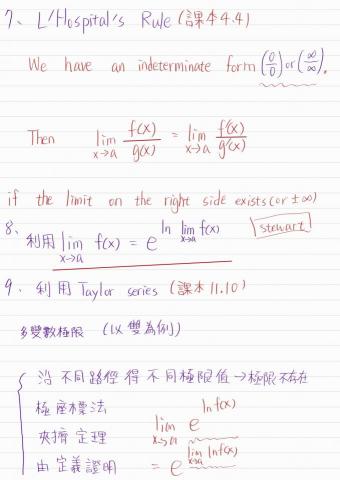 7、L'Hospital's Rule (課本4.4)
We have an indeterminate form (0/0) or (∞/∞).
Then lim x→a f(x)/g(x) = lim x→a f'(x)/g'(x)
if the limit on the right side exists (or ±∞)
8、利用 lim x→a f(x) = e^(ln lim x→a f(x)) stewart
9、利用 Taylor series (課本 11.10)
多變數極限 (以雙為例)
沿不同路徑得不同極限值→極限不存在
極座標法 lim x→a e^(ln f(x))
夾擠定理
由定義證明 = e^(lim x→a ln f(x))